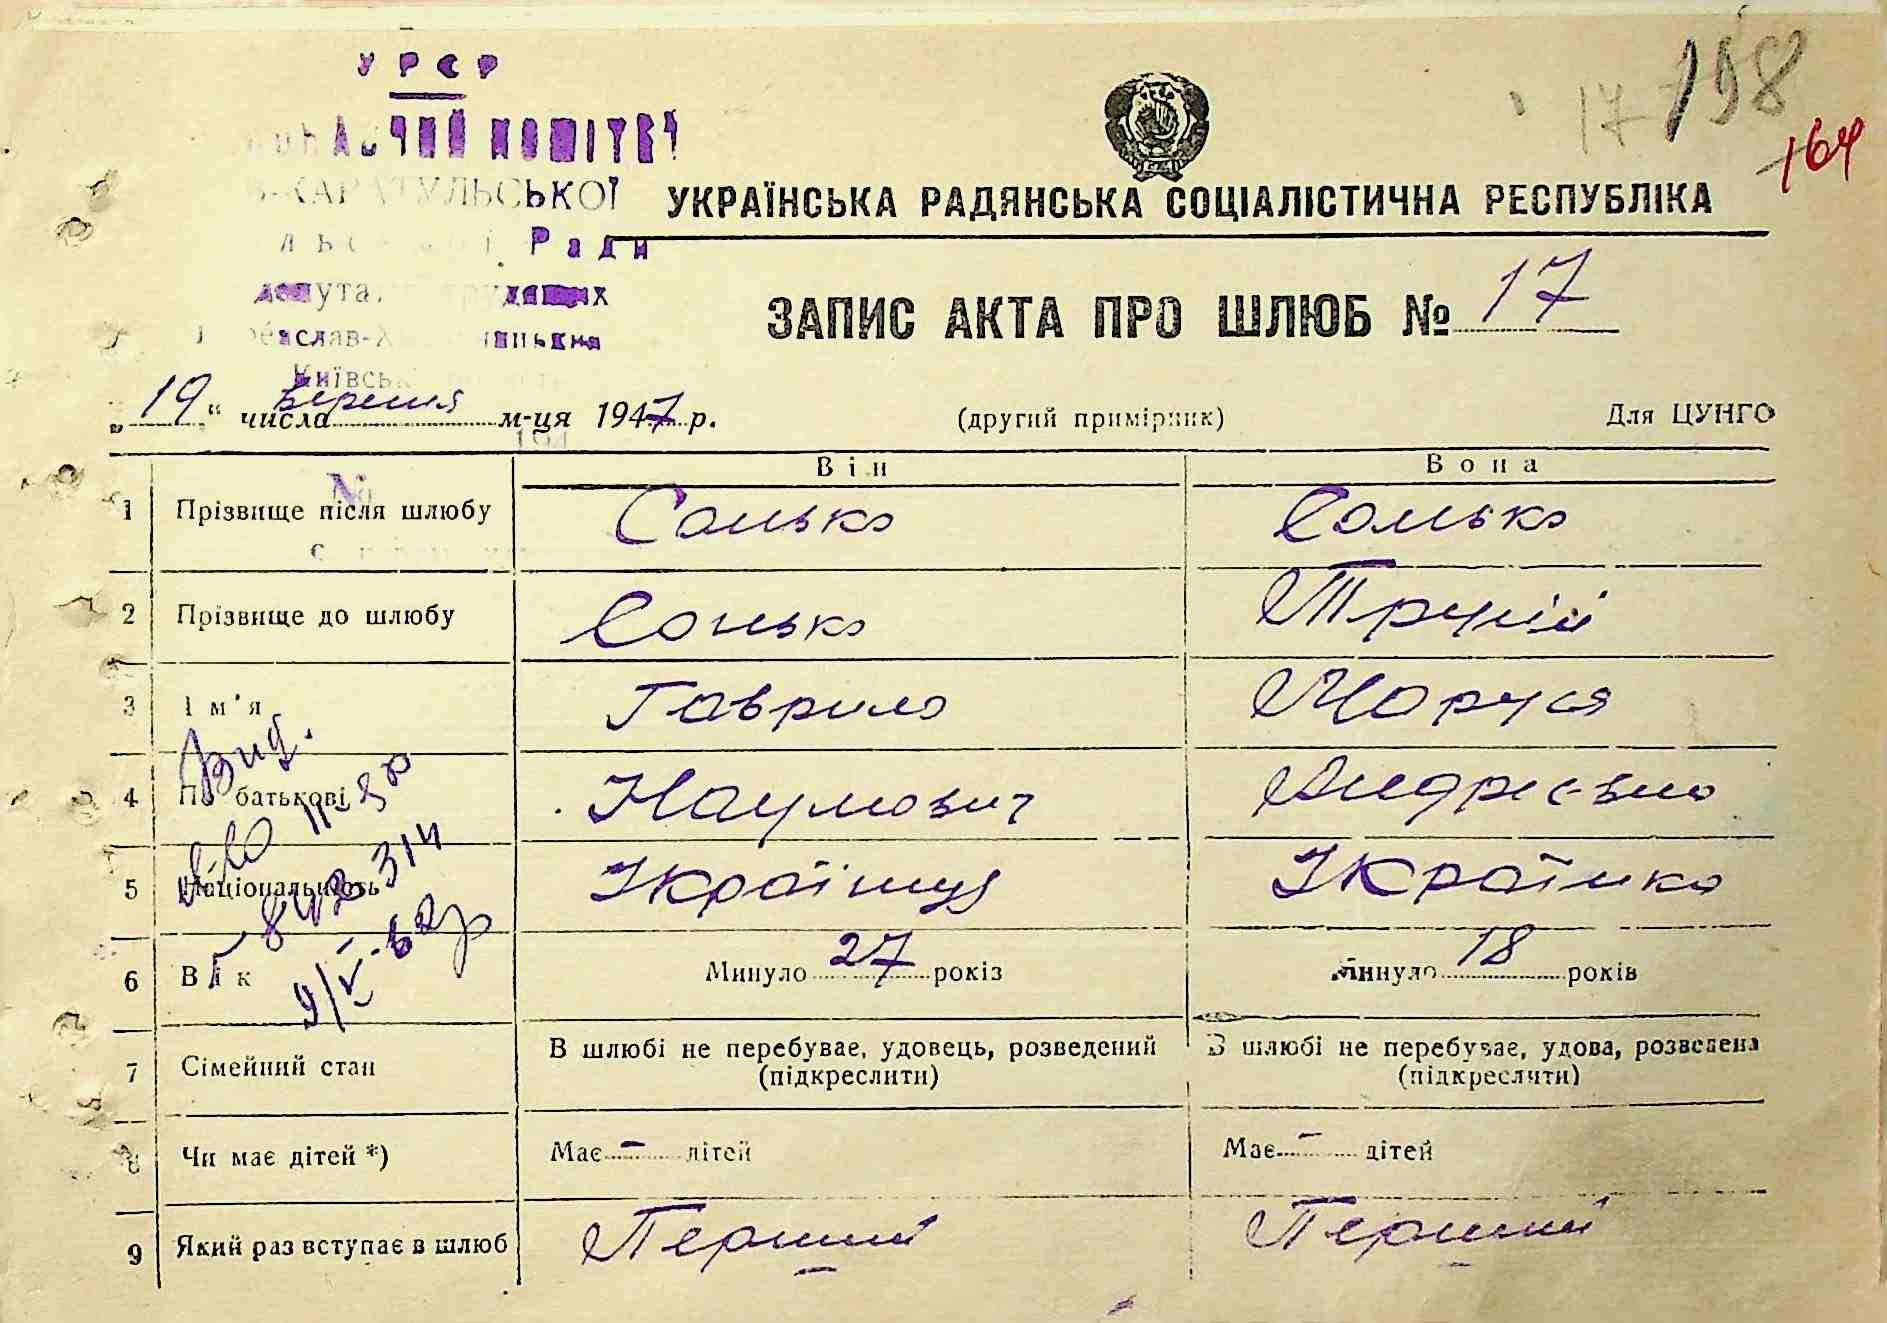 УРСР
КОМІТЕТ
КАРАТУЛЬСЬКОЇ
Ради
депутатів трудящих
198
17
164
УКРАЇНСЬКА РАДЯНСЬКА СОЦІАЛІСТИЧНА РЕСПУБЛІКА
ЗАПИС АКТА ПРО ШЛЮБ № 17
„19“ числа березня м-ця 1947 р. (другий примірник) Для ЦУНГО
Він Вона
№
1 Прізвище після шлюбу Сонько Сонько
2 Прізвище до шлюбу Сонько
3 Ім'я Гаврило Маруся
Вид.
4 По батькові Наумович Андреєвна
5 Національність Українця Українка
6 Вік Минуло 27 років Минуло 18 років
7 Сімейний стан В шлюбі не перебуває, удовець, розведений (підкреслити) В шлюбі не перебуває, удова, розведена (підкреслити)
8 Чи має дітей *) Має – дітей Має – дітей
9 Який раз вступає в шлюб Перший Перший